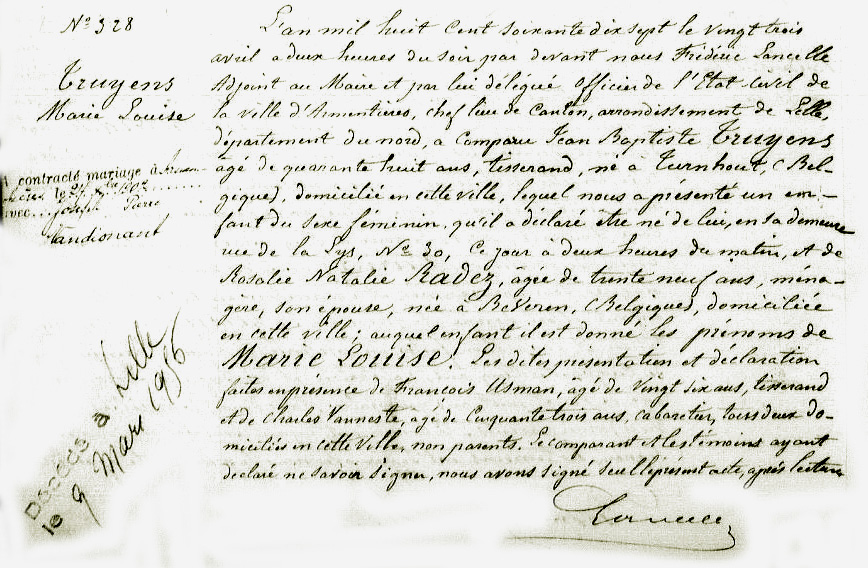 N° 328
Truyens
Marie Louise
contracté mariage à
le
avec Joseph Pierre
Vandionant
Décédée à Lille
le 9 Mars 1956
L'an mil huit cent soixante dix sept le vingt trois
avril a deux heures du soir par devant nous Frédéric Lancelle
Adjoint au Maire et par lui délégué officier de l'Etat Civil de
la ville d'Armentières, chef lieu de canton, arrondissement de Lille,
département du nord, a comparu Jean Baptiste Truyens
âgé de quarante huit ans, tisserand, né à Turnhout, (Bel-
gique), domicilié en cette ville, lequel nous a présenté un en-
fant du sexe féminin, qu'il a déclaré être né de lui, en sa demeure
rue de la Lys, N° 30, ce jour à deux heures du matin, et de
Rosalie Natalie Radez, âgée de trente neuf ans, ména-
gère, son épouse, née à Beveren, (Belgique), domiciliée
en cette ville; auquel enfant il est donné les prénoms de
Marie Louise. Les dites présentation et déclaration
faites en présence de François Usman, âgé de vingt six ans, tisserand
et de Charles Vanneste, âgé de cinquante trois ans, cabaretier, tous deux do-
miciliés en cette ville, non parents. Le comparant et les témoins ayant
déclaré ne savoir signer, nous avons signé seul le présent acte, après lecture